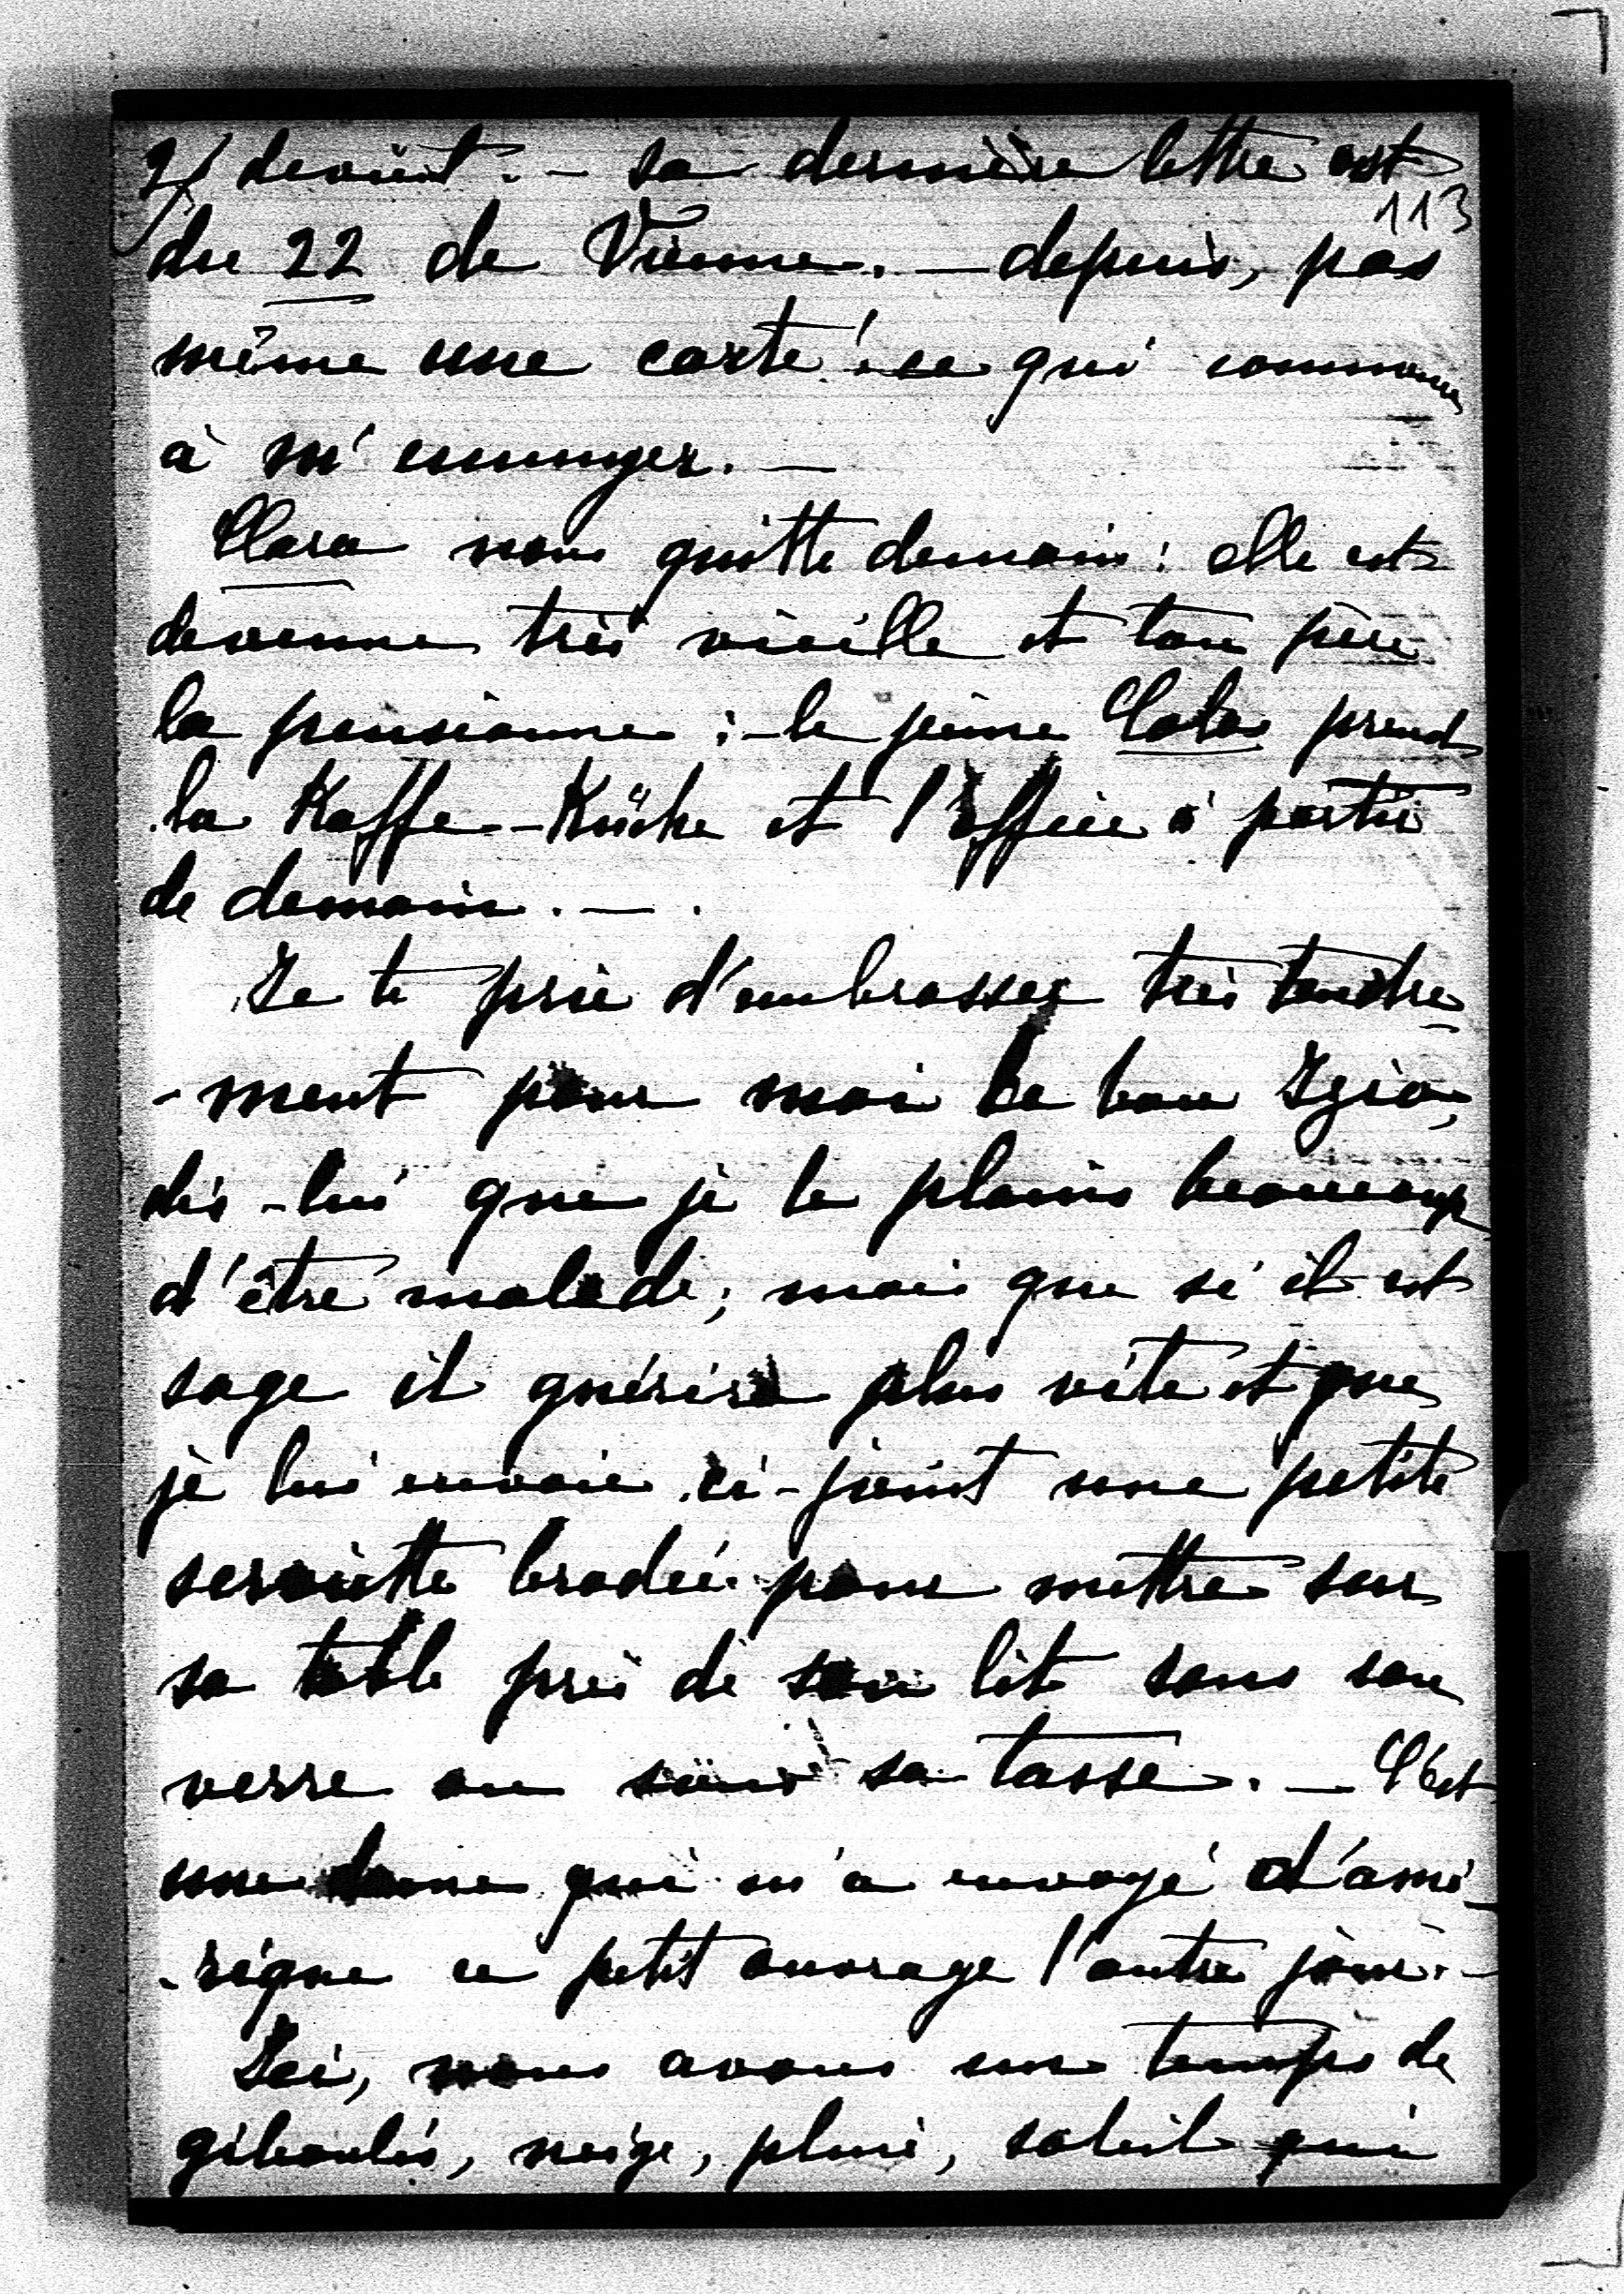 2/ devint. - sa dernière lettre est
113
du 22 de Vienne. — depuis, pas
même une carte! ce qui commence
à m'ennuyer. —
Clara nous quitte demain : elle est
devenue très vieille et ton père
la pensionne ; - le jeune Colas prend
la Kaffe--Küche et l'office à partir
de demain. — .
Je te prie d'embrasser très tendre
-ment pour moi le bon Izio,
dis-lui que je le plains beaucoup
d'être malade ; mais que si il est
sage il guérira plus vite et que
je lui envoie ci-joint une petite
serviette brodée pour mettre sur
sa table près de son lit sous son
verre ou sous sa tasse. — C'est
une dame qui m'a envoyé d'amé-
-rique ce petit ouvrage l'autre jour. -
Ici, nous avons un temps de
giboulés, neige, pluie, soleil qui